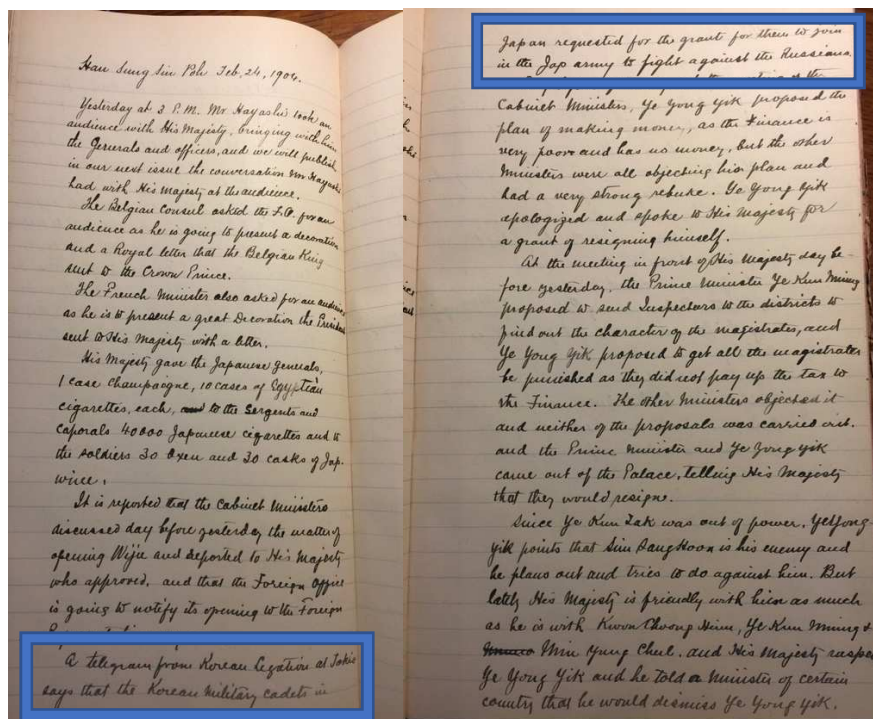 Han Sung Sin Poh Feb, 24, 1904.
Yesterday at 3 P.M. Mr Hayashi took an
audience with His Majesty, bringing with him
the Generals and officers, and we will publish
in our next issue the conversation Mr Hayashi
had with His Majesty at the audience.
The Belgian Consul asked the F.O. for an
audience as he is going to present a decoration
and a Royal letter that the Belgian King
sent to the Crown Prince.
The French Minister also asked for an audience
as he is to present a great Decoration the President
sent to His Majesty with a letter.
His Majesty gave the Japanese generals,
1 case Champagne, 10 cases of Egyptian
cigarettes, each, to the Sergents and
Caporals 40000 Japanese cigarettes and to
the soldiers 30 Oxen and 30 casks of Jap.
wine.
It is reported that the Cabinet Ministers
discussed day before yesterday the matter of
opening Wiju and reported to His Majesty
who approved, and that the Foreign Office
is going to notify its opening to the Foreign
A telegram from Korean Legation at Tokio
says that the Korean Military cadets in
Japan requested for the grant for them to join
in the Jap army to fight against the Russians.
Cabinet Ministers, Ye Yong Yik proposed the
plan of making money, as the Finance is
very poor and has no money, but the other
Ministers were all objecting his plan and
had a very strong rebuke. Ye Yong Yik
apologized and spoke to His Majesty for
a grant of resigning himself.
At the meeting in front of His Majesty day be-
fore yesterday, the Prime Minister Ye Kun Miung
proposed to send Inspectors to the districts to
find out the character of the magistrates, and
Ye Yong Yik proposed to get all the magistrates
be punished as they did not pay up the tax to
the Finance. The other Ministers objected it
and neither of the proposals was carried out.
and the Prime Minister and Ye Yong Yik
came out of the Palace, telling His Majesty
that they would resigne.
Since Ye Kun Tak was out of power, Ye Yong
Yik points that Sim Sang Hoon is his enemy and
he plans out and tries to do against him. But
lately His Majesty is friendly with him as much
as he is with Kwon Choong Hiun, Ye Kun Miung &
Min Yung Chul. and His Majesty
Ye Yong Yik and he told a Minister of certain
country that he would dismiss Ye Yong Yik.